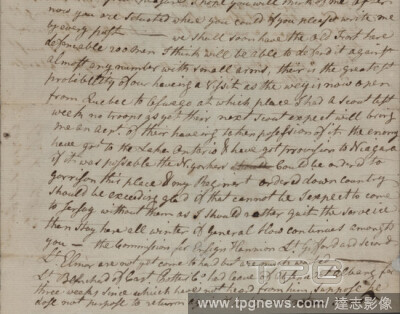 now you are situated where you could if you pleased write me
by every post we shall soon have the old Fort here
defencable so soon I think will be able to defend it against
almost any number with small arms, their is the greatest
probibillity of our haveing a visit as the way is now open
from Quebec to Oswago at which place I had a scout last
week no troops as yet their next scout expect will bring
me an acct of their haveing taken possession of it. the enemy
have got to the Lake Ontario & have got provision to Niagara
if it was possable the could be ordered to
garrison this place & my Regment ordered down country
should be exceeding glad if that cannot be I expect to come
to Jersey without them as I should rather quit the service
than stay here all winter of General Howe continues enough
you the Commissions for Ensign Lt Gifford and Second
Lt Elmer are not yet come to had but are
Lt of Capt. Co had leave of to Albany for
three weeks since which have not heard from him, suppose he
dose not purpose to return
www.tpgnews.com / 達志影像
TPG